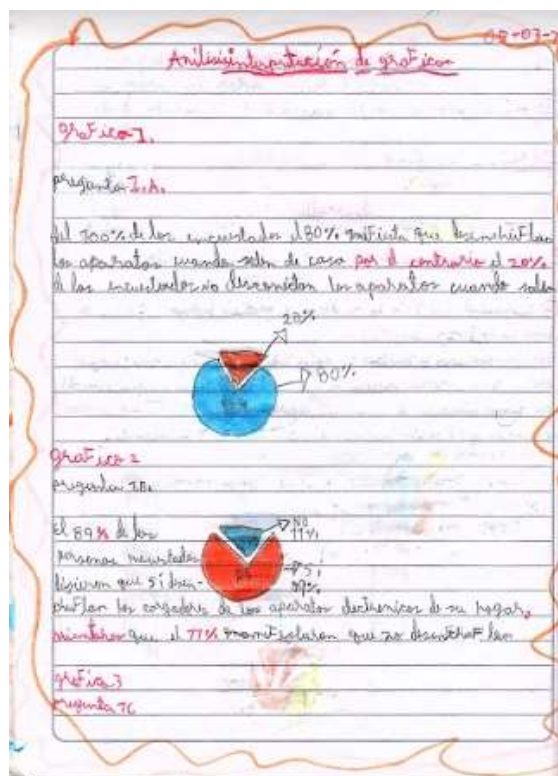 Análisis interpretación de graficos
grafica 1.
pregunta 1.A.
del 100% de los encuestados el 80% manifiesta que desenchuflan
los aparatos cuando salen de casa por el contrario el 20%
de los encuestados no desconectan los aparatos cuando salen
20%
80%
grafico 2
pregunta 1B.
El 89% de las
No
11%
personas encuestadas
Si
89%
dijeron que si desen-
chuflan los cargadores de los aparatos electronicos de su hogar,
mientras que el 11% manifestaron que no desenchuflan
grafica 3
pregunta 1C